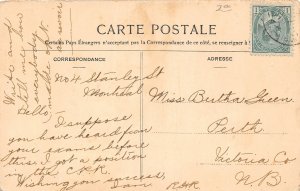 CARTE POSTALE
Certains Pays Étrangers n'acceptant pas la Correspondance de ce côté, se renseigner à
CORRESPONDANCE
ADRESSE
No 4 Stanley St
Montreal
Hello,
I suppose
you have heard from
your exams before
this. I got a position
in the C.P.R.
Wishing you success,
I am
Write and
tell me how
everybody
Miss Bertha Green
Perth
Victoria Co
N.B.